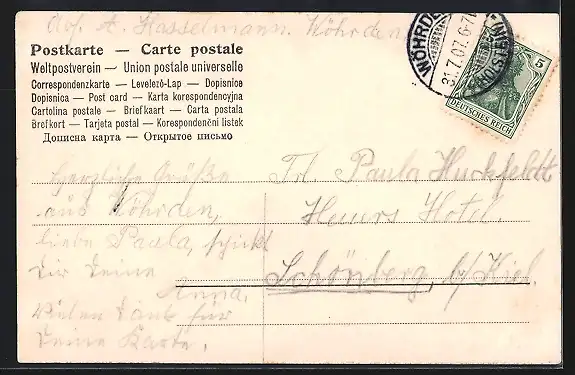 Abs. A. Kasselmann. Wöhrden.
Postkarte — Carte postale
Weltpostverein — Union postale universelle
Correspondenzkarte — Levelező-Lap — Dopisnice
Dopisnica — Post card — Karta korespondencyjna
Cartolina postale — Briefkaart — Carta postala
Brefkort — Tarjeta postal — Korespondenční listek
Дописна карта — Открытое письмо
WÖHRDEN
(HOLSTEIN)
31.7.07. 6-7
5
DEUTSCHES REICH
Herzliche Grüße
aus Wöhrden,
liebe Paula, schickt
Dir Deine
Anna.
Vielen Dank für
Deine Karte.
Frl. Paula Huckfeldt
Hotel.
Schönberg, b/Kiel.